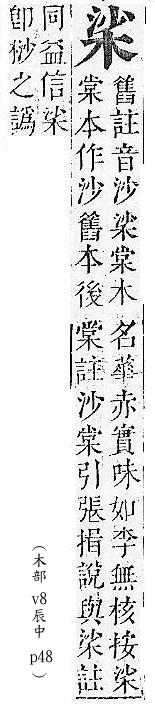 桬
舊註音沙桬棠木名華赤實味如李無核按桬
棠本作沙舊本後棠註沙棠引張揖說與桬註
同益信桬
卽桫之譌
(木部 v8 辰中 p48)